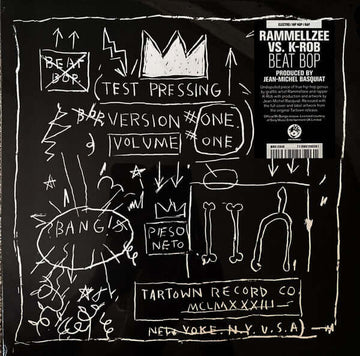 ELECTRO / HIP HOP / RAP
RAMMELLZEE
VS. K-ROB
BEAT BOP
PRODUCED BY
JEAN-MICHEL BASQUIAT
Undisputed piece of true hip hop genius
by graffiti artist Rammellzee and rapper
K-Rob with production and artwork by
Jean-Michel Basquiat. Reissued with
the full cover and label artwork from
the original Tartown release.
BEAT
BOP
TEST PRESSING
VERSION # ONE
VOLUME # ONE
BANG!
PESO
NETO
TARTOWN RECORD CO.
MCLMXXXIII
NEW YORK. N.Y. U.S.A